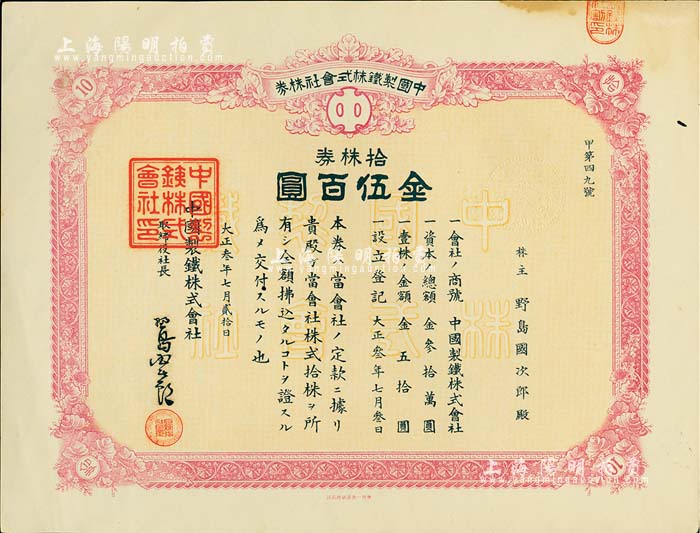 上海陽明拍賣
www.yangmingauction.com
中國製鐵株式會社株券
10
拾
拾株券
金伍百圓
甲第四九號
株主 野島國次郎殿
一會社ノ商號 中國製鐵株式會社
一資本ノ總額 金參拾萬圓
一壹株ノ金額 金五拾圓
設立登記 大正叁年七月叁日
本券ハ當會社ノ定款ニ據リ
貴殿ヲ當會社株式拾株ヲ所
有シ全額拂込タルコトヲ證スル
爲メ交付スルモノ也
大正叁年七月貳拾日
中國製鐵株式會社
取締役社長
中國製
鐵株式
會社印
中國製鐵
株式會社
拾
10
上海陽明拍賣
www.yangmingauction.com